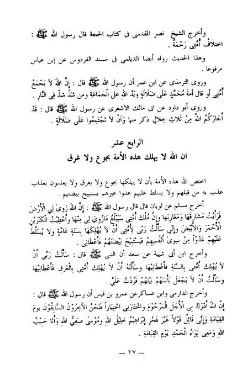 وأخرج الشيخ نصر المقدسي في كتاب الحجة قال رسول الله ﷺ :
اختلاف أمتي رحمة .
وهذا الحديث رواه أيضا الديلمي في مسند الفردوس عن ابن عباس
مرفوعا .
وروى الترمذي عن ابن عمر أن رسول الله ﷺ قال : إن الله لا يجمع
أمتي أو قال أمة محمد على ضلالة ويد الله على الجماعة ومن شذ شذ في النار .
وروى أبو داود عن أبي مالك الأشعري عن رسول الله ﷺ قال : قد
أجاركم الله من ثلاث خلال ذكر منها وأن لا تجتمعوا على ضلالة .
الرابع عشر
ان الله لا يهلك هذه الأمة بجوع ولا غرق
اختص الله هذه الأمة بأن لا يهلكها بجوع ولا بغرق ولا يعذبون بعذاب
عذب به من قبلهم ولا يسلط عليهم عدوا غيرهم يستبيح بيضتهم .
وأخرج مسلم عن ثوبان قال قال رسول الله ﷺ إن الله زوى لي الأرض
فرأيت مشارقها ومغاربها وإن ملك أمتي سيبلغ ما زوي لي منها وأعطيت الكنزين
الأحمر والأبيض وإني سألت ربي لأمتي أن لا يهلكها بسنة عامة ولا يسلط
عليهم عدوا من سوى أنفسهم فيستبيح بيضتهم فأعطاني .
وأخرج ابن أبي شيبة عن سعد أن النبي ﷺ قال : سألت ربي أن
لا يهلك أمتي بالسنة فأعطانيها وسألته أن لا يهلك أمتي بالغرق فأعطانيها
وسألته أن لا يجعل بأسهم بينهم فردت علي .
وأخرج الدارمي وابن عساكر عن عمرو بن قيس أن رسول الله ﷺ قال :
إن الله أدرك بي الأجل المرحوم واختارني اختيارا فنحن الآخرون السابقون يوم
القيامة وإني قائل قولا غير فخر إبراهيم خليل الله وموسى صفي الله وأنا حبيب
الله ومعي لواء الحمد يوم القيامة .
— ٢٧ —